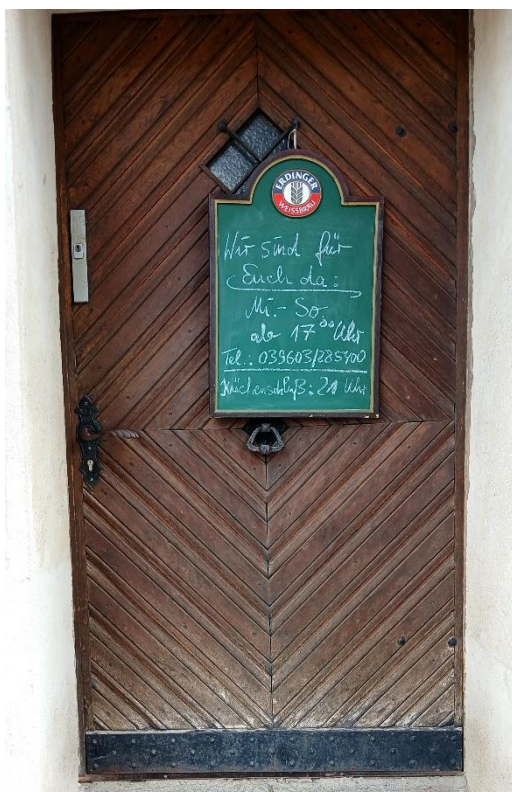 ERDINGER
WEISSBRÄU
Wir sind für
Euch da:
Mi.- So.
ab 17⁰⁰ Uhr
Tel.: 039603/285400
Küchenschluß: 21 Uhr